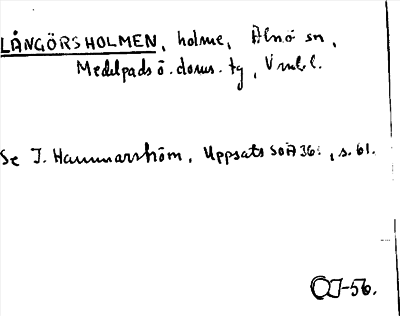 LÅNGÖRSHOLMEN, holme, Alnö sn,
Medelpads ö. doms. tg, Vnl. l.
Se I. Hammarström, Uppsats SOÄ 36:, s. 61.
OJ-56.